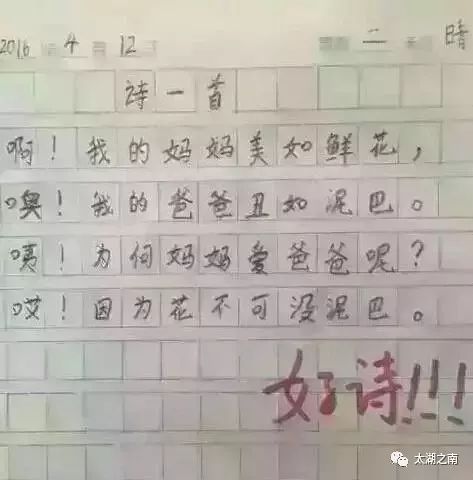 2016 4 12 二 晴
诗一首
啊！我的妈妈美如鲜花，
噢！我的爸爸丑如泥巴。
咦！为何妈妈爱爸爸呢？
哎！因为花不可没泥巴。
好诗!!!
太湖之南